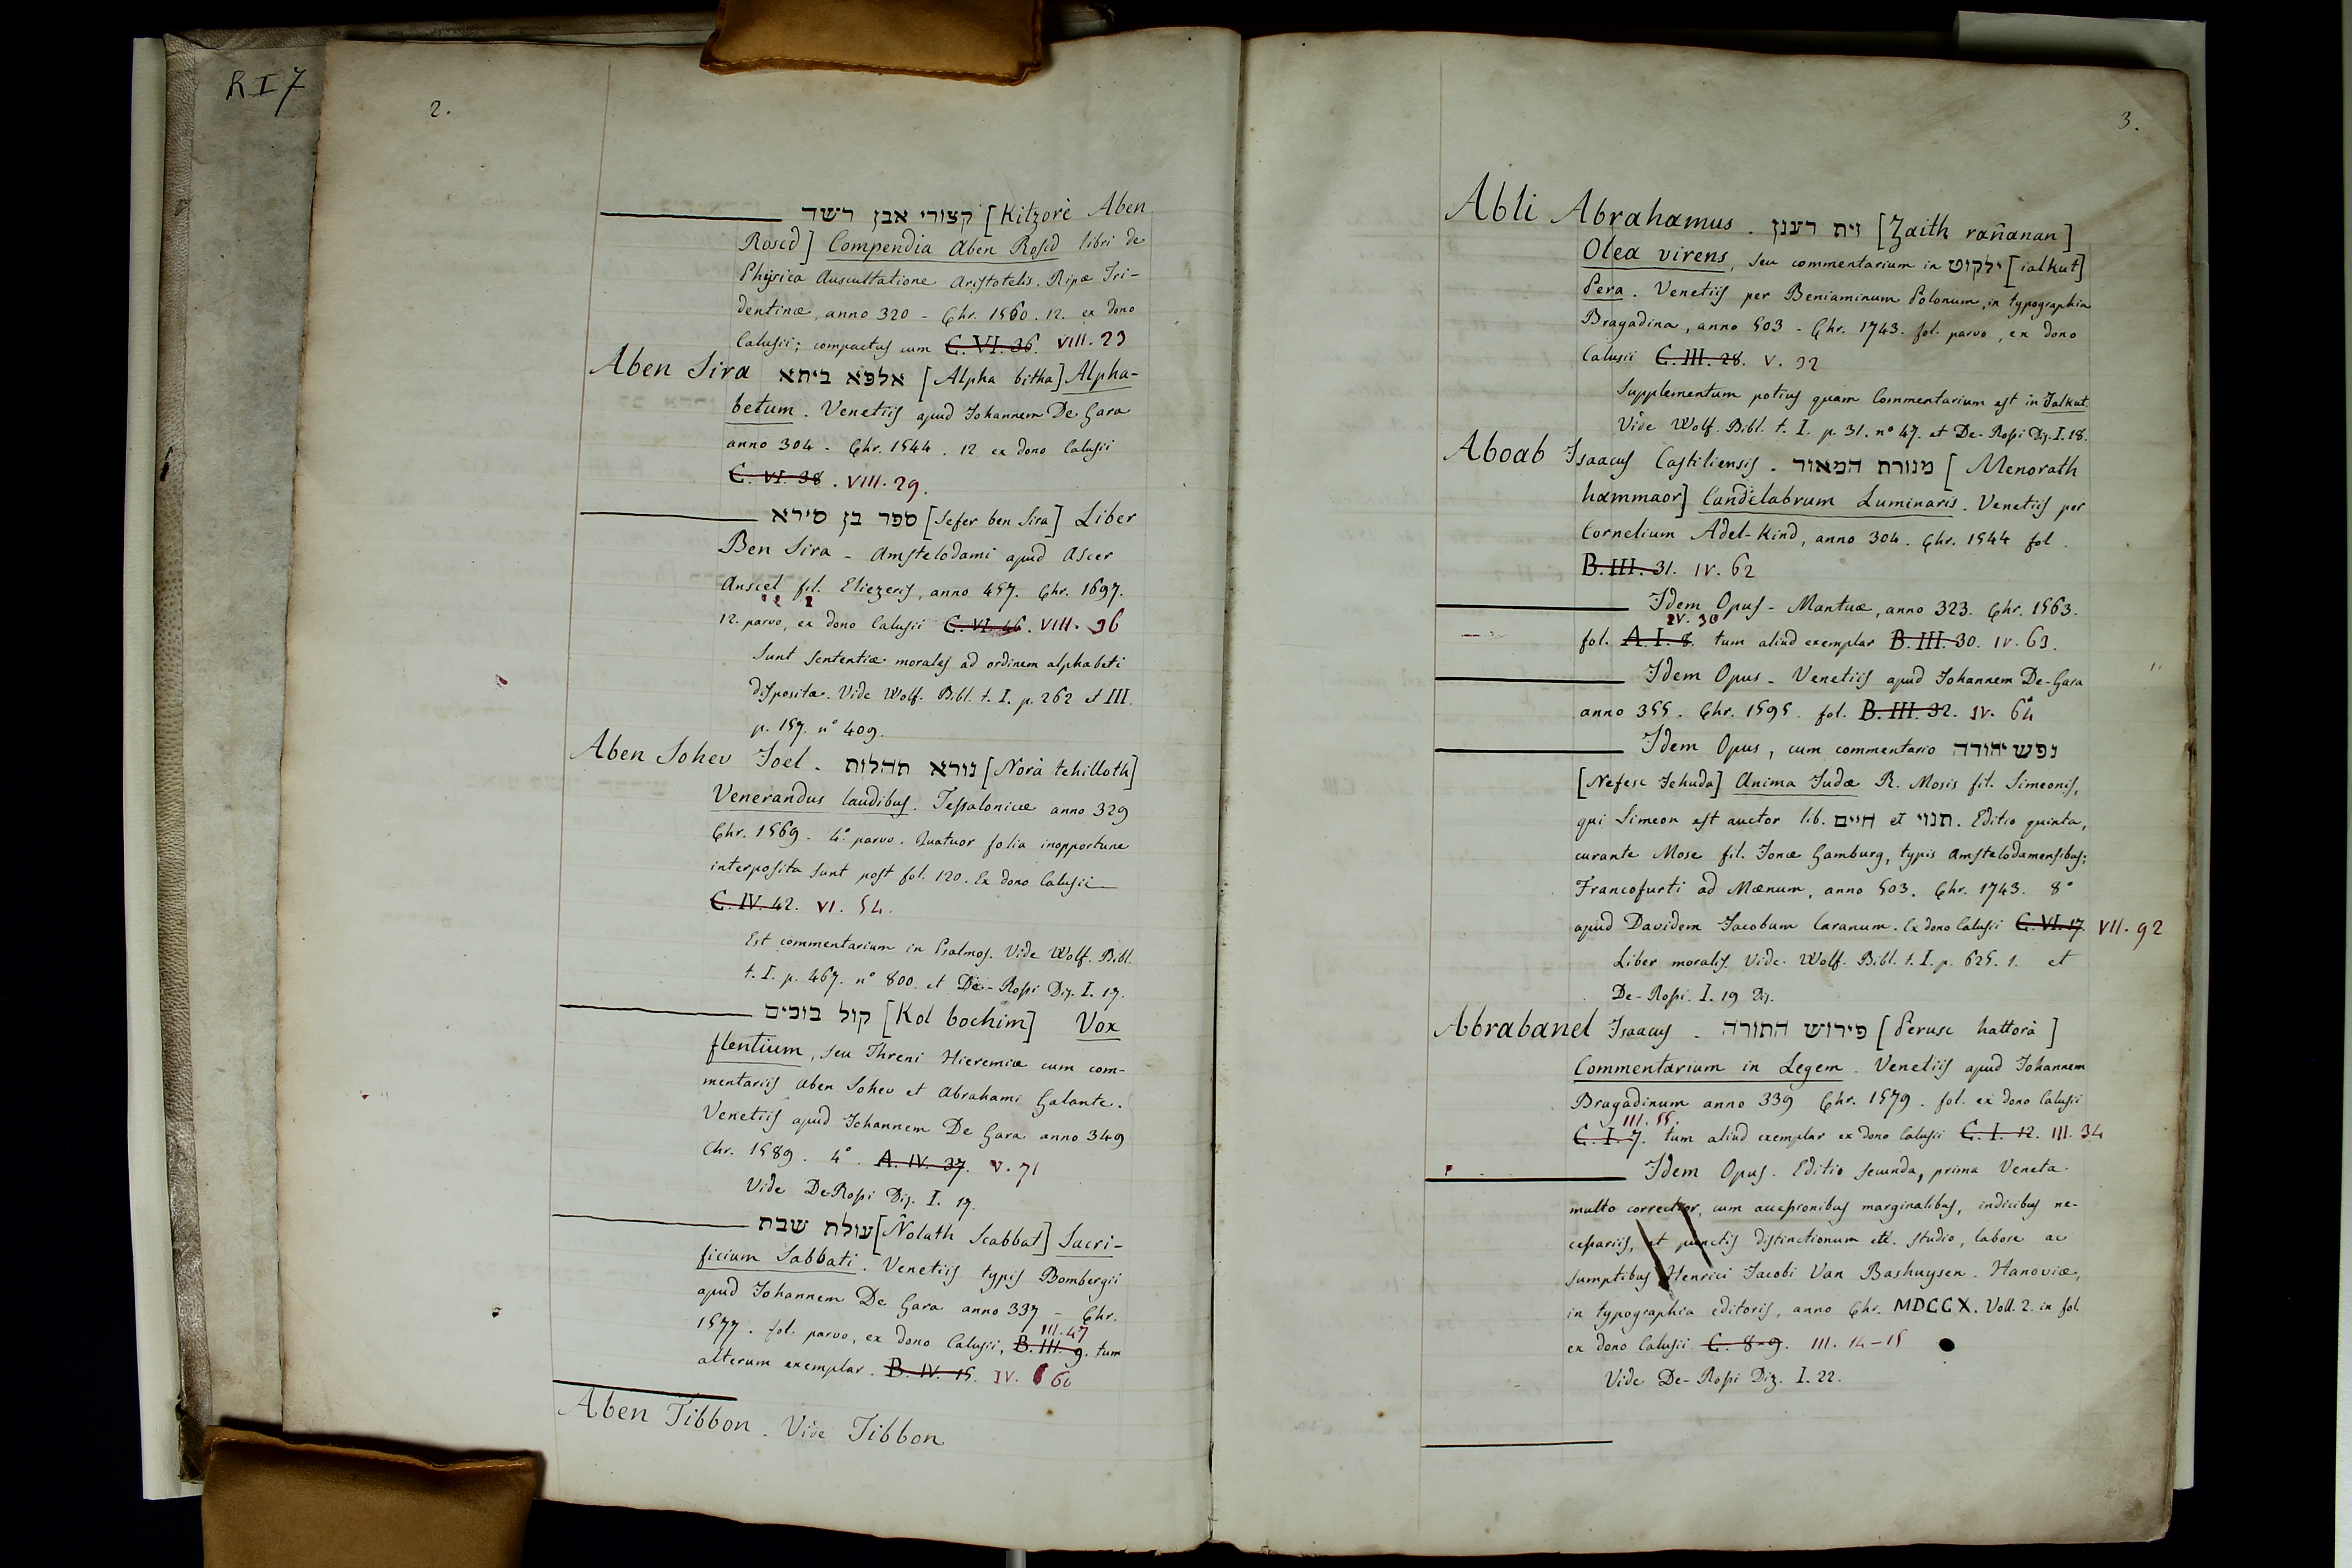 R I 7
2.
קצורי אבן רשד [Kitzorè Aben
Rosed] Compendia Aben Rosed libri de
Physica Auscultatione Aristotelis. Ripæ Tri-
dentinæ, anno 320 - Chr. 1560. 12. ex dono
Calusii; compactus cum C. VI. 36. VIII. 23
Aben Sira אלפא ביתא [Alpha bitha] Alpha-
betum. Venetiis apud Johannem De Gara
anno 304 - Chr. 1544. 12 ex dono Calusii
C. VI. 38. VIII. 29.
ספר בן סירא [Sefer ben Sira] Liber
Ben Sira - Amstelodami apud Ascer
Anscel fil. Eliezeris, anno 457. Chr. 1697.
12. parvo, ex dono Calusii C. VI. 46. VIII. 36
Sunt sententiæ morales ad ordinem alphabeti
dispositæ. Vide Wolf. Bibl. t. I. p. 262 et III.
p. 157. n° 409.
Aben Sohev Joel. נורא תהלות [Norà tehilloth]
Venerandus laudibus. Tessalonicæ anno 329
Chr. 1569. 4° parvo. Quatuor folia inopportune
interposita sunt post fol. 120. Ex dono Calusii
C. IV. 42. VI. 54.
Est commentarium in Psalmos. Vide Wolf. Bibl.
t. I. p. 467. n° 800. et De-Rossi Diz. I. 17.
קול בוכים [Kol bochim] Vox
flentium, seu Threni Hieremiæ cum com-
mentariis Aben Sohev et Abrahami Galante.
Venetiis apud Johannem De Gara anno 349
Chr. 1589. 4°. A. IV. 37. V. 71
Vide De Rossi Diz. I. 17.
עולת שבת [Ñolath Scabbat] Sacri-
ficium Sabbati. Venetiis typis Bombergii
apud Johannem De Gara anno 337 - Chr.
III. 47
1577. fol. parvo, ex dono Calusii, B. III. 9. tum
alterum exemplar. B. IV. 15. IV. 60
Aben Tibbon. Vide Tibbon
3.
Abli Abrahamus. זית רענן [Zaith rañanan]
Olea virens, seu commentarium in ילקוט [ialkut]
Pera. Venetiis per Beniaminum Polonum, in typographia
Bragadina, anno 503 - Chr. 1743. fol. parvo, ex dono
Calusii C. III. 28. V. 32
Supplementum potius quam Commentarium est in Jalkut.
Vide Wolf. Bibl. t. I. p. 31. n° 47. et De-Rossi Diz. I. 18.
Aboab Isaacus Castiliensis. מנורת המאור [Menorath
hammaor] Candelabrum Luminaris. Venetiis per
Cornelium Adel-Kind, anno 304. Chr. 1544 fol.
B. III. 31. IV. 62
Idem Opus - Mantuæ, anno 323. Chr. 1563.
IV. 30
fol. A. I. 8. tum aliud exemplar B. III. 30. IV. 63.
Idem Opus - Venetiis apud Johannem De-Gara
anno 355. Chr. 1595. fol. B. III. 32. IV. 64
Idem Opus, cum commentario נפש יהודה
[Nefesc Jehuda] Anima Judæ R. Mosis fil. Simeonis,
qui Simeon est auctor lib. חיים et תנוי. Editio quinta,
curante Mose fil. Jonæ Gamburg, typis Amstelodamensibus;
Francofurti ad Mænum, anno 503. Chr. 1743. 8°
apud Davidem Jacobum Caranum. Ex dono Calusii C. VI. 17. VII. 92
Liber moralis. Vide. Wolf. Bibl. t. I. p. 625. 1. et
De-Rossi. I. 19 Diz.
Abrabanel Isaacus - פירוש התורה [Perusc hattorà]
Commentarium in Legem. Venetiis apud Johannem
Bragadinum anno 339 Chr. 1579. fol. ex dono Calusii
III. 55.
C. I. 7. tum aliud exemplar ex dono Calusii C. I. 12. III. 34
Idem Opus. Editio secunda, prima Veneta
multo correctior, cum accessionibus marginalibus, indicibus ne-
cessariis, et punctis distinctionum etc. studio, labore ac
sumptibus Henrici Jacobi Van Bashuysen. Hanoviæ,
in typographia editoris, anno Chr. MDCCX. Voll. 2. in fol.
ex dono Calusii C. 8-9. III. 14-15
Vide De-Rossi Diz. I. 22.